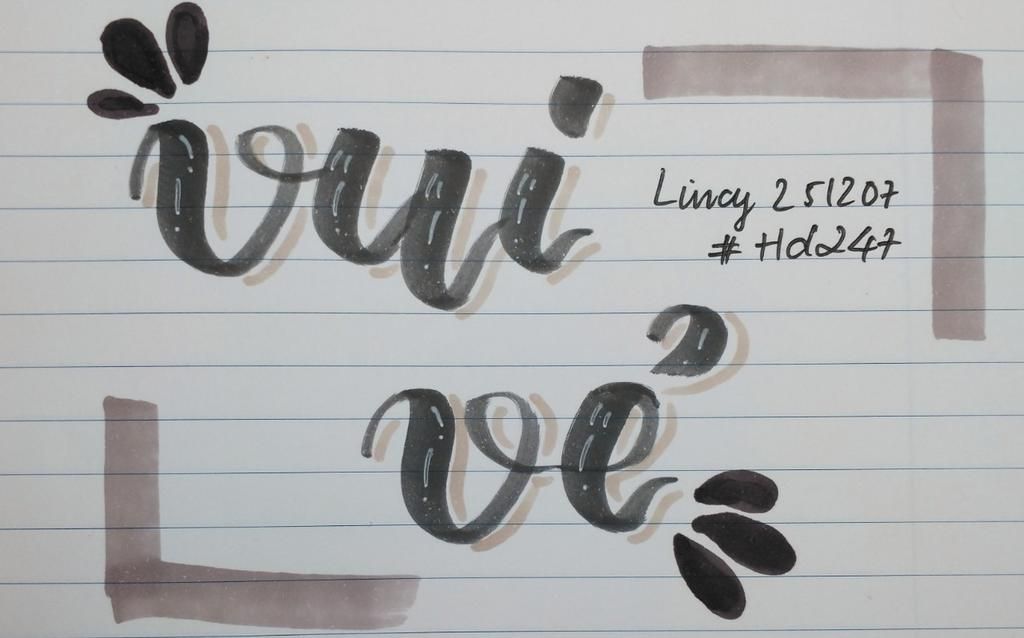 vui
Lincy 251207
#Hd247
vẻ